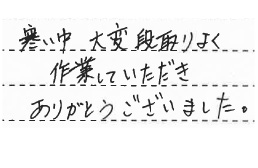 寒い中 大変段取りよく
作業していただき
ありがとうございました。